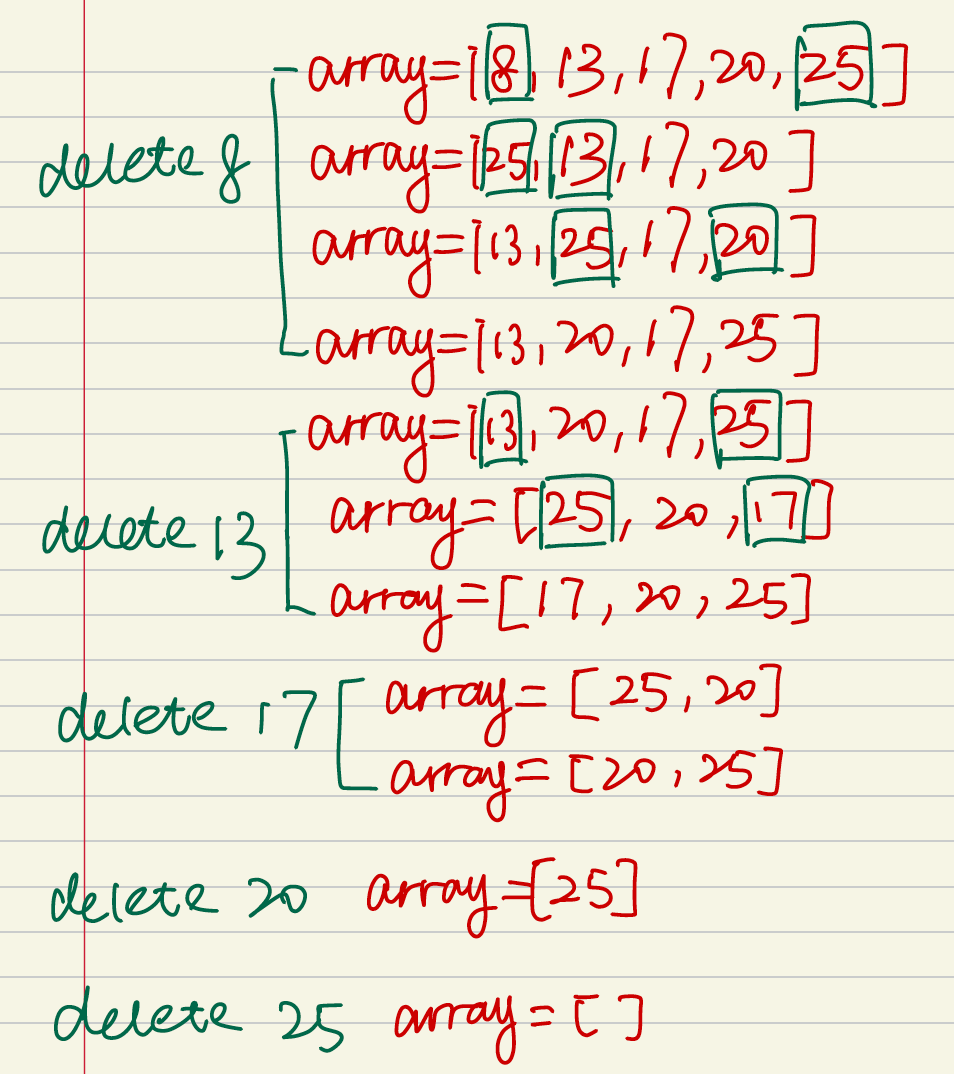 array=[8, 13, 17, 20, 25]
delete 8 array=[25, 13, 17, 20 ]
array=[13, 25, 17, 20 ]
array=[13, 20, 17, 25]
array=[13, 20, 17, 25]
delete 13 array=[25, 20, 17]
array=[17, 20, 25]
delete 17 array=[25, 20]
array=[20, 25]
delete 20 array=[25]
delete 25 array=[ ]